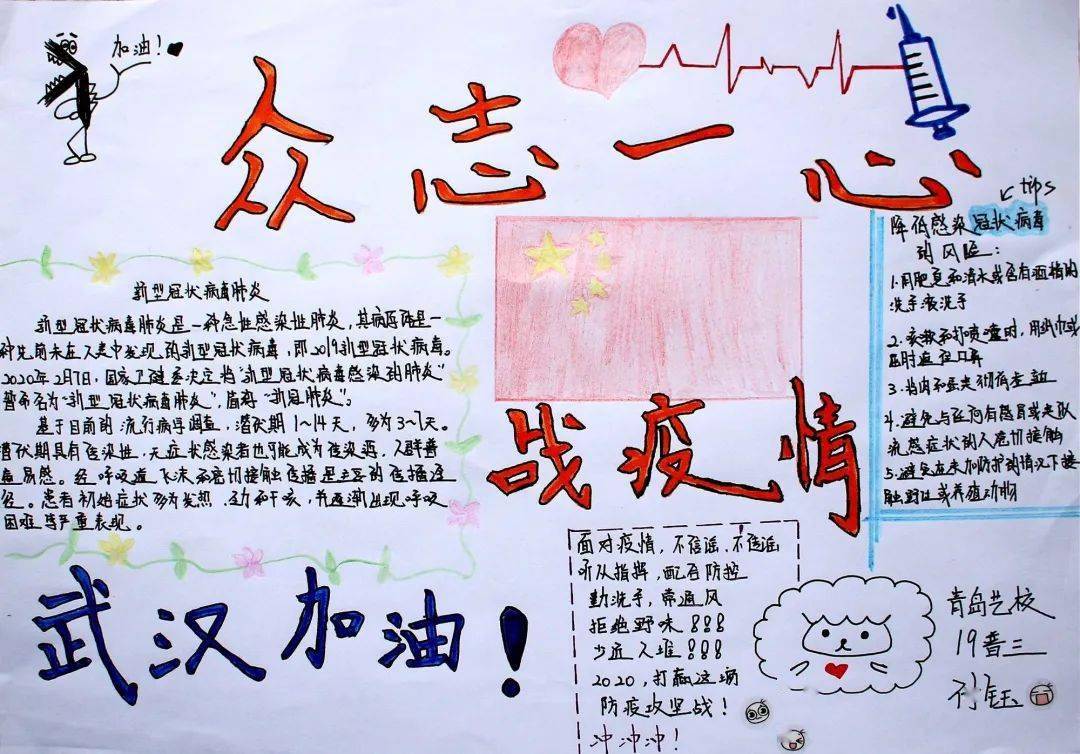 加油！
众志一心
战疫情
武汉加油！
新型冠状病毒肺炎
新型冠状病毒肺炎是一种急性感染性肺炎，其病原体是一
种先前未在人类中发现的新型冠状病毒，即2019新型冠状病毒。
2020年2月7日，国家卫健委决定将“新型冠状病毒感染的肺炎”
暂命名为“新型冠状病毒肺炎”，简称“新冠肺炎”。
基于目前的流行病学调查，潜伏期1~14天，多为3~7天。
潜伏期具有传染性，无症状感染者也可能成为传染源，人群普
遍易感。经呼吸道飞沫和密切接触传播是主要的传播途
径。患者初始症状多为发热、乏力和干咳，并逐渐出现呼吸
困难等严重表现。
tips
降低感染冠状病毒
的风险：
1.用肥皂和清水或含有酒精的
洗手液洗手
2.咳嗽和打喷嚏时，用纸巾或
屈肘遮住口鼻
3.将肉和蛋类彻底煮
4.避免与任何有感冒或类似
流感症状的人密切接触
5.避免在未加防护的情况下接
触野生或养殖动物
面对疫情，不信谣、不传谣
听从指挥，配合防控
勤洗手，常通风
拒绝野味！！！
少近人堆！！！
2020，打赢这场
防疫攻坚战！
冲冲冲！
青岛艺校
19普三
钰